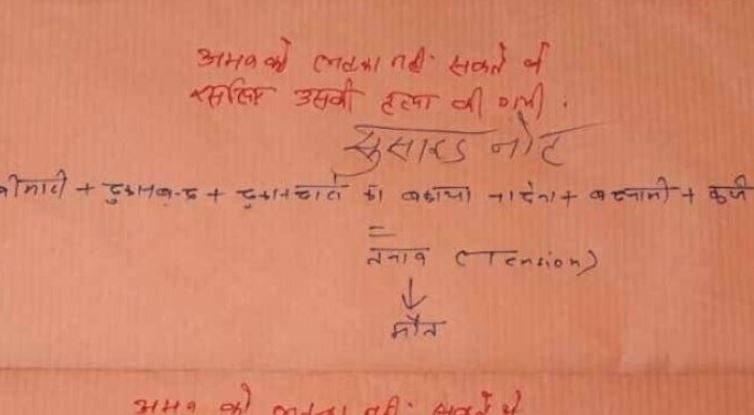 अमन को लटका नहीं सकते थे
इसलिए उसकी हत्या की गयी.
सुसाइड नोट
बीमारी + दुकान बन्द + दुकानदारों का बकाया ना देना + बदनामी + कर्ज
=
तनाव (Tension)
↓
मौत
अमन को लटका नहीं सकते थे